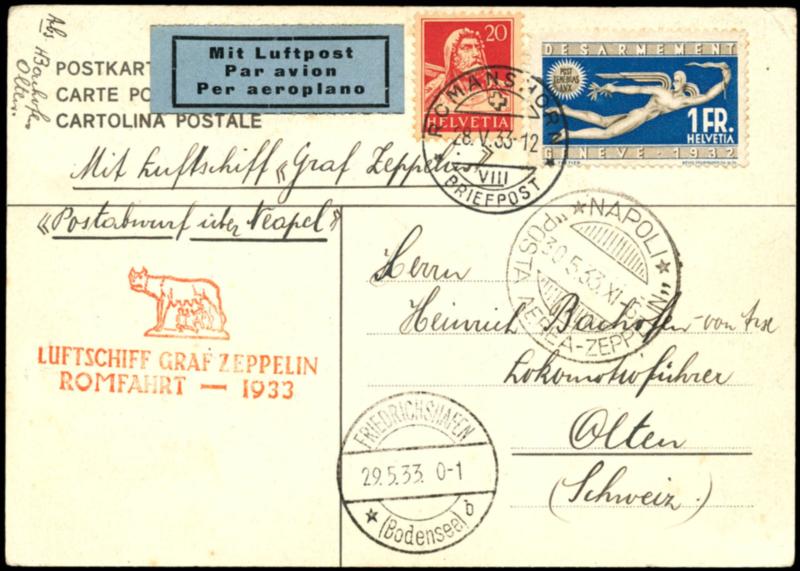 Abs. H. Bachofen
Olten.
POSTKAR
CARTE PO
CARTOLINA POSTALE
Mit Luftpost
Par avion
Per aeroplano
20
HELVETIA
DESARMEMENT
POST TENEBRAS LUX
1 FR.
HELVETIA
GENEVE · 1932
ROMANSHORN
28.V.33-12
VIII
BRIEFPOST
Mit Luftschiff «Graf Zeppelin»
«Postabwurf über Neapel»
NAPOLI
30.5.33.XI-6
"POSTA AEREA-ZEPPELIN"
LUFTSCHIFF GRAF ZEPPELIN
ROMFAHRT — 1933
Herrn
Heinrich Bachofen-von
Lokomotivführer
Olten
(Schweiz.)
FRIEDRICHSHAFEN
29.5.33. 0-1
(Bodensee) b